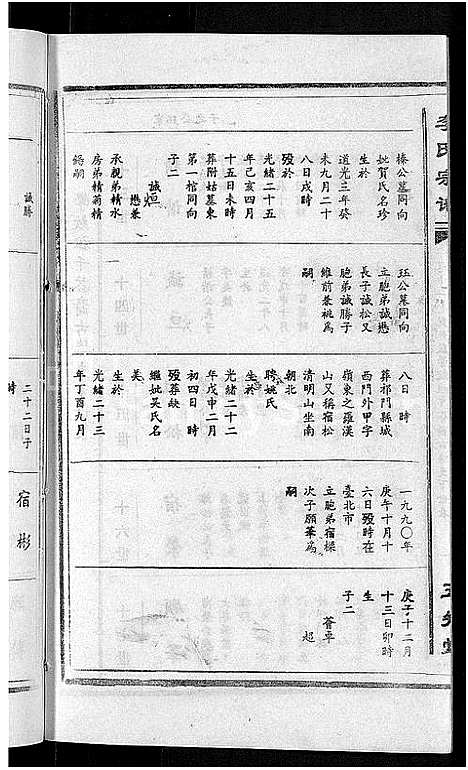 李氏宗譜
榛公墓同向
妣賀氏名珍
生於
道光三年癸
未九月二十
八日戌時
歿於
光緒二十五
年己亥四月
十五日未時
葬附姑墓東
第一棺同向
子二
誠烜
懋兼
承親弟精水
房弟精萄精
錫嗣
珏公墓同向
立胞弟誠懋
長子誠松又
胞弟誠勝子
維前兼祧為
嗣
八日 時
葬祁門縣城
西門外甲字
嶺東之羅漢
山又稱宿松
清明山坐南
朝北
聘姚氏
生於
光緒二十二
年戊申二月
初四日 時
歿葬缺
繼妣吳氏名
美
生於
光緒二十三
年丁酉九月
一九九〇年
庚午十月十
六日歿時在
臺北市
立胞弟宿樑
次子願華為
嗣
庚子十二月
十三日卯時
生
子二
薈平
超
誠勝
二十二日子
時
宿彬